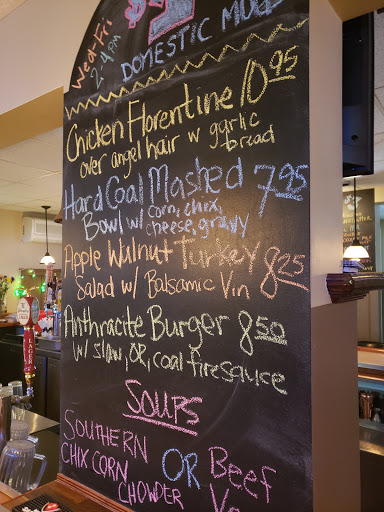 $2
Wed-Fri
2-4 PM
DOMESTIC MUGS
Chicken Florentine 10.95
over angel hair w garlic
bread
Hard Coal Mashed 7.95
Bowl w/ corn, chix,
cheese, gravy
Apple Walnut Turkey 8.25
Salad w/ Balsamic Vin
Anthracite Burger 8.50
w/ slaw, OR, coal firesauce
SOUPS
SOUTHERN
CHIX CORN
CHOWDER
OR
Beef